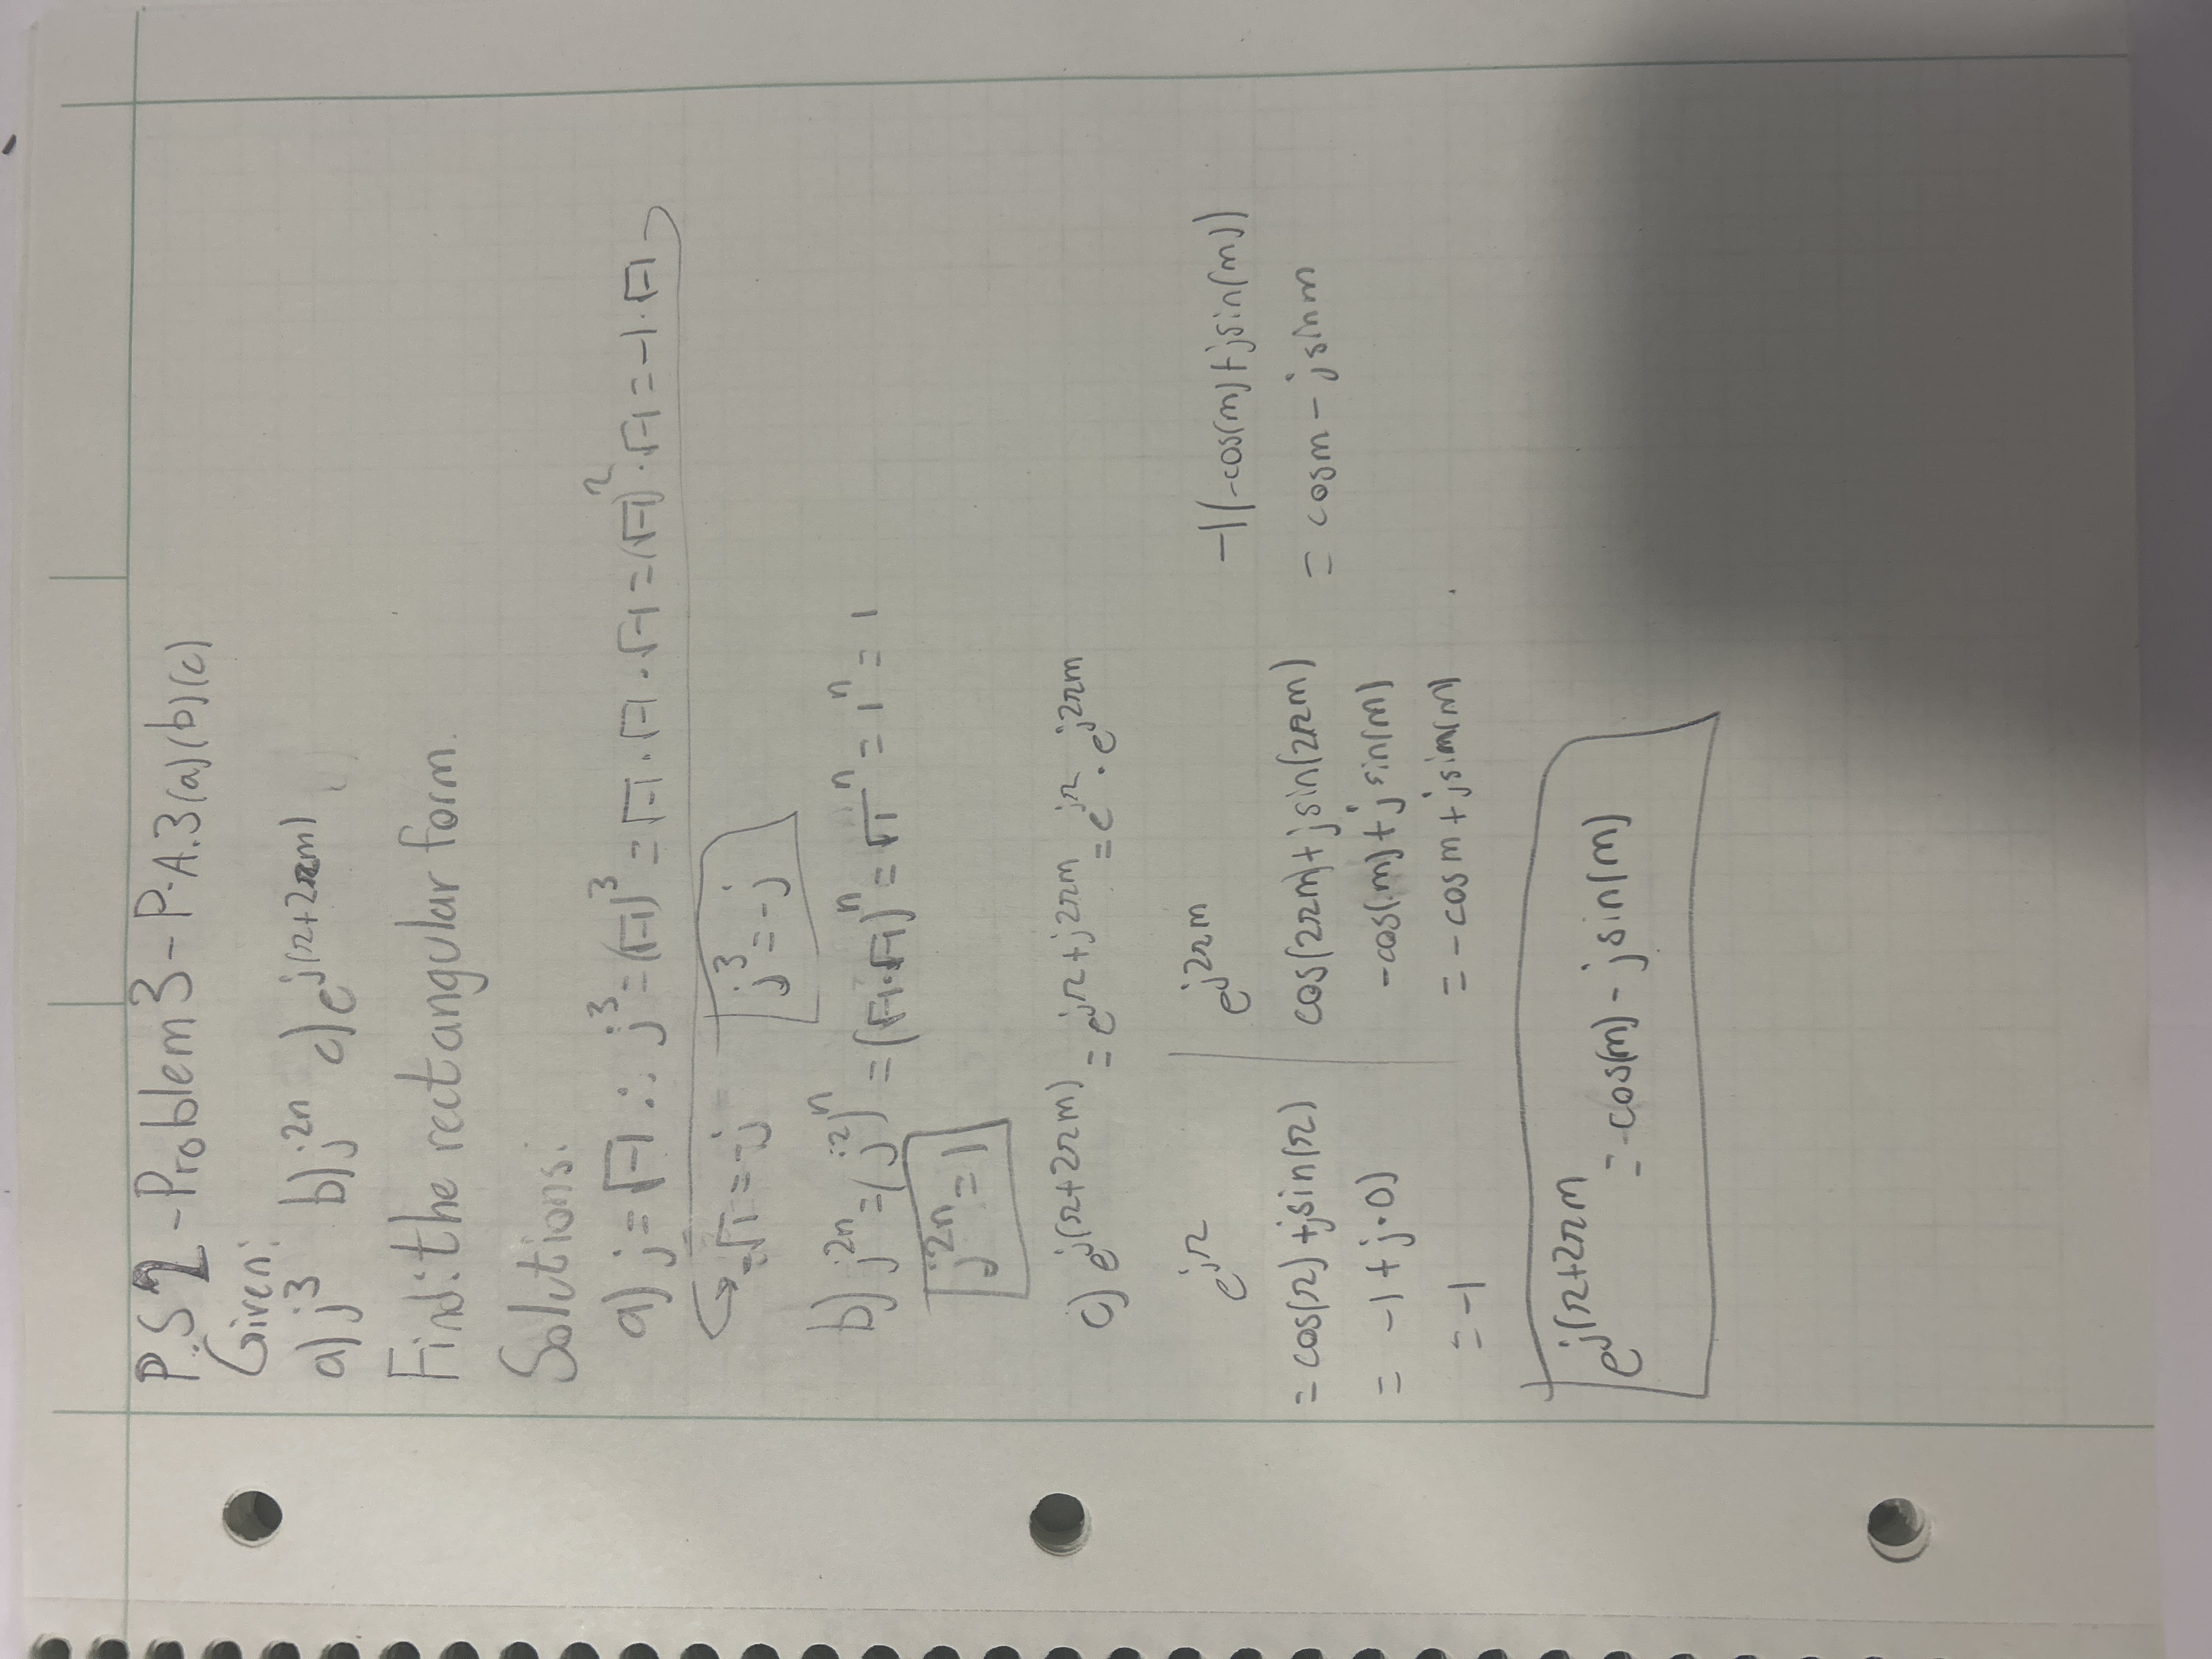 P.S 2 - Problem 3 - P.A.3(a)(b)(c)
Given:
a) j^3 b) j^{2n} c) e^{j(π+2πm)}
Find: the rectangular form.
Solutions:
a) j = √-1 ∴ j^3 = (√-1)^3 = √-1 · √-1 · √-1 = (√-1)^2 · √-1 = -1 · √-1
= -√1 = -j j^3 = -j
b) j^{2n} = (j^2)^n = (√-1·√-1)^n = √1^n = 1^n = 1
j^{2n} = 1
c) e^{j(π+2πm)} = e^{jπ+j2πm} = e^{jπ} · e^{j2πm}
e^{jπ}
= cos(π) + jsin(π)
= -1 + j·0)
= -1
e^{j2πm}
cos(2πm) + jsin(2πm)
-cos(m) + j sin(m)
= -cosm + jsin(m)
-1(-cos(m) + jsin(m))
= cosm - jsinm
e^{j(π+2πm} = cos(m) - jsin(m)